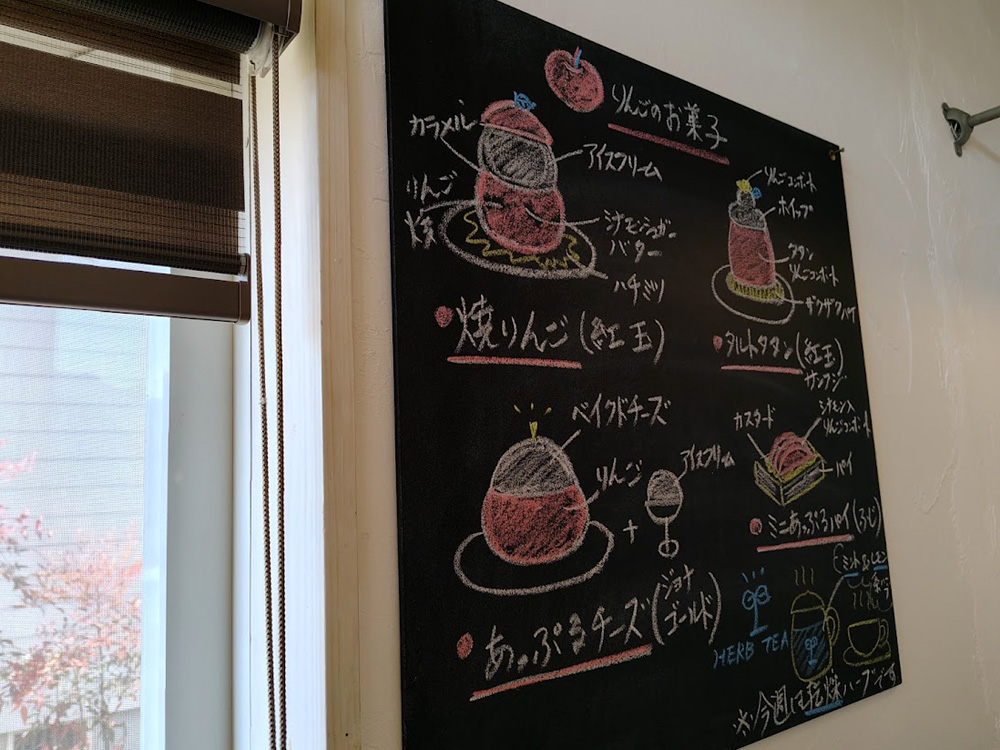 りんごのお菓子
カラメル
アイスクリーム
りんご
焼
シナモンシュガー
バター
ハチミツ
焼りんご(紅玉)
りんごコンポート
ホイップ
タタン
りんごコンポート
ザクザクパイ
タルトタタン(紅玉)
サンフジ
ベイクドチーズ
りんご
+
アイスクリーム
あっぷるチーズ(ジョナ
ゴールド)
カスタード
シナモン入
りんごコンポート
パイ
ミニあっぷるパイ(ふじ)
HERB TEA
ミント
レモン
※今週は乾燥ハーブです